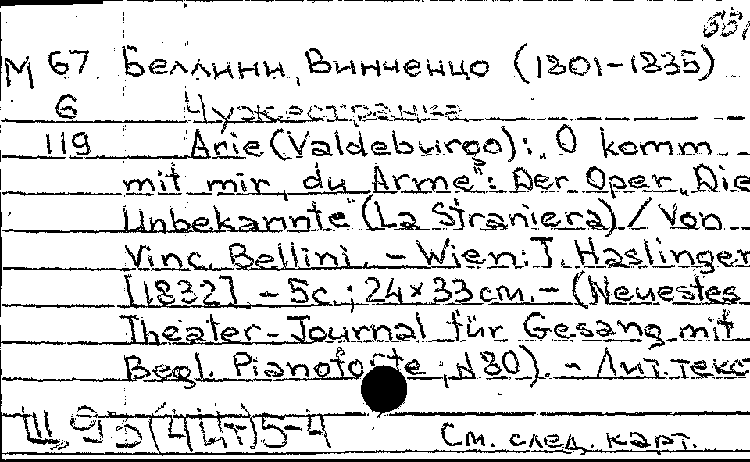 М 67 Беллини, Винченцо (1801-1835)
6 Чужестранка
119 Arie (Valdeburgo): „O komm
mit mir, du Arme": Der Oper „Die
Unbekannte" (La Straniera) / Von
Vinc. Bellini. - Wien: T. Haslinger
[1832]. - 5с.; 24×33 см. - (Neuestes
Theater-Journal für Gesang mit
Begl. Pianoforte; N 80). - Лит. текст
Щ 93(4Ит)5-4 См. след. карт.